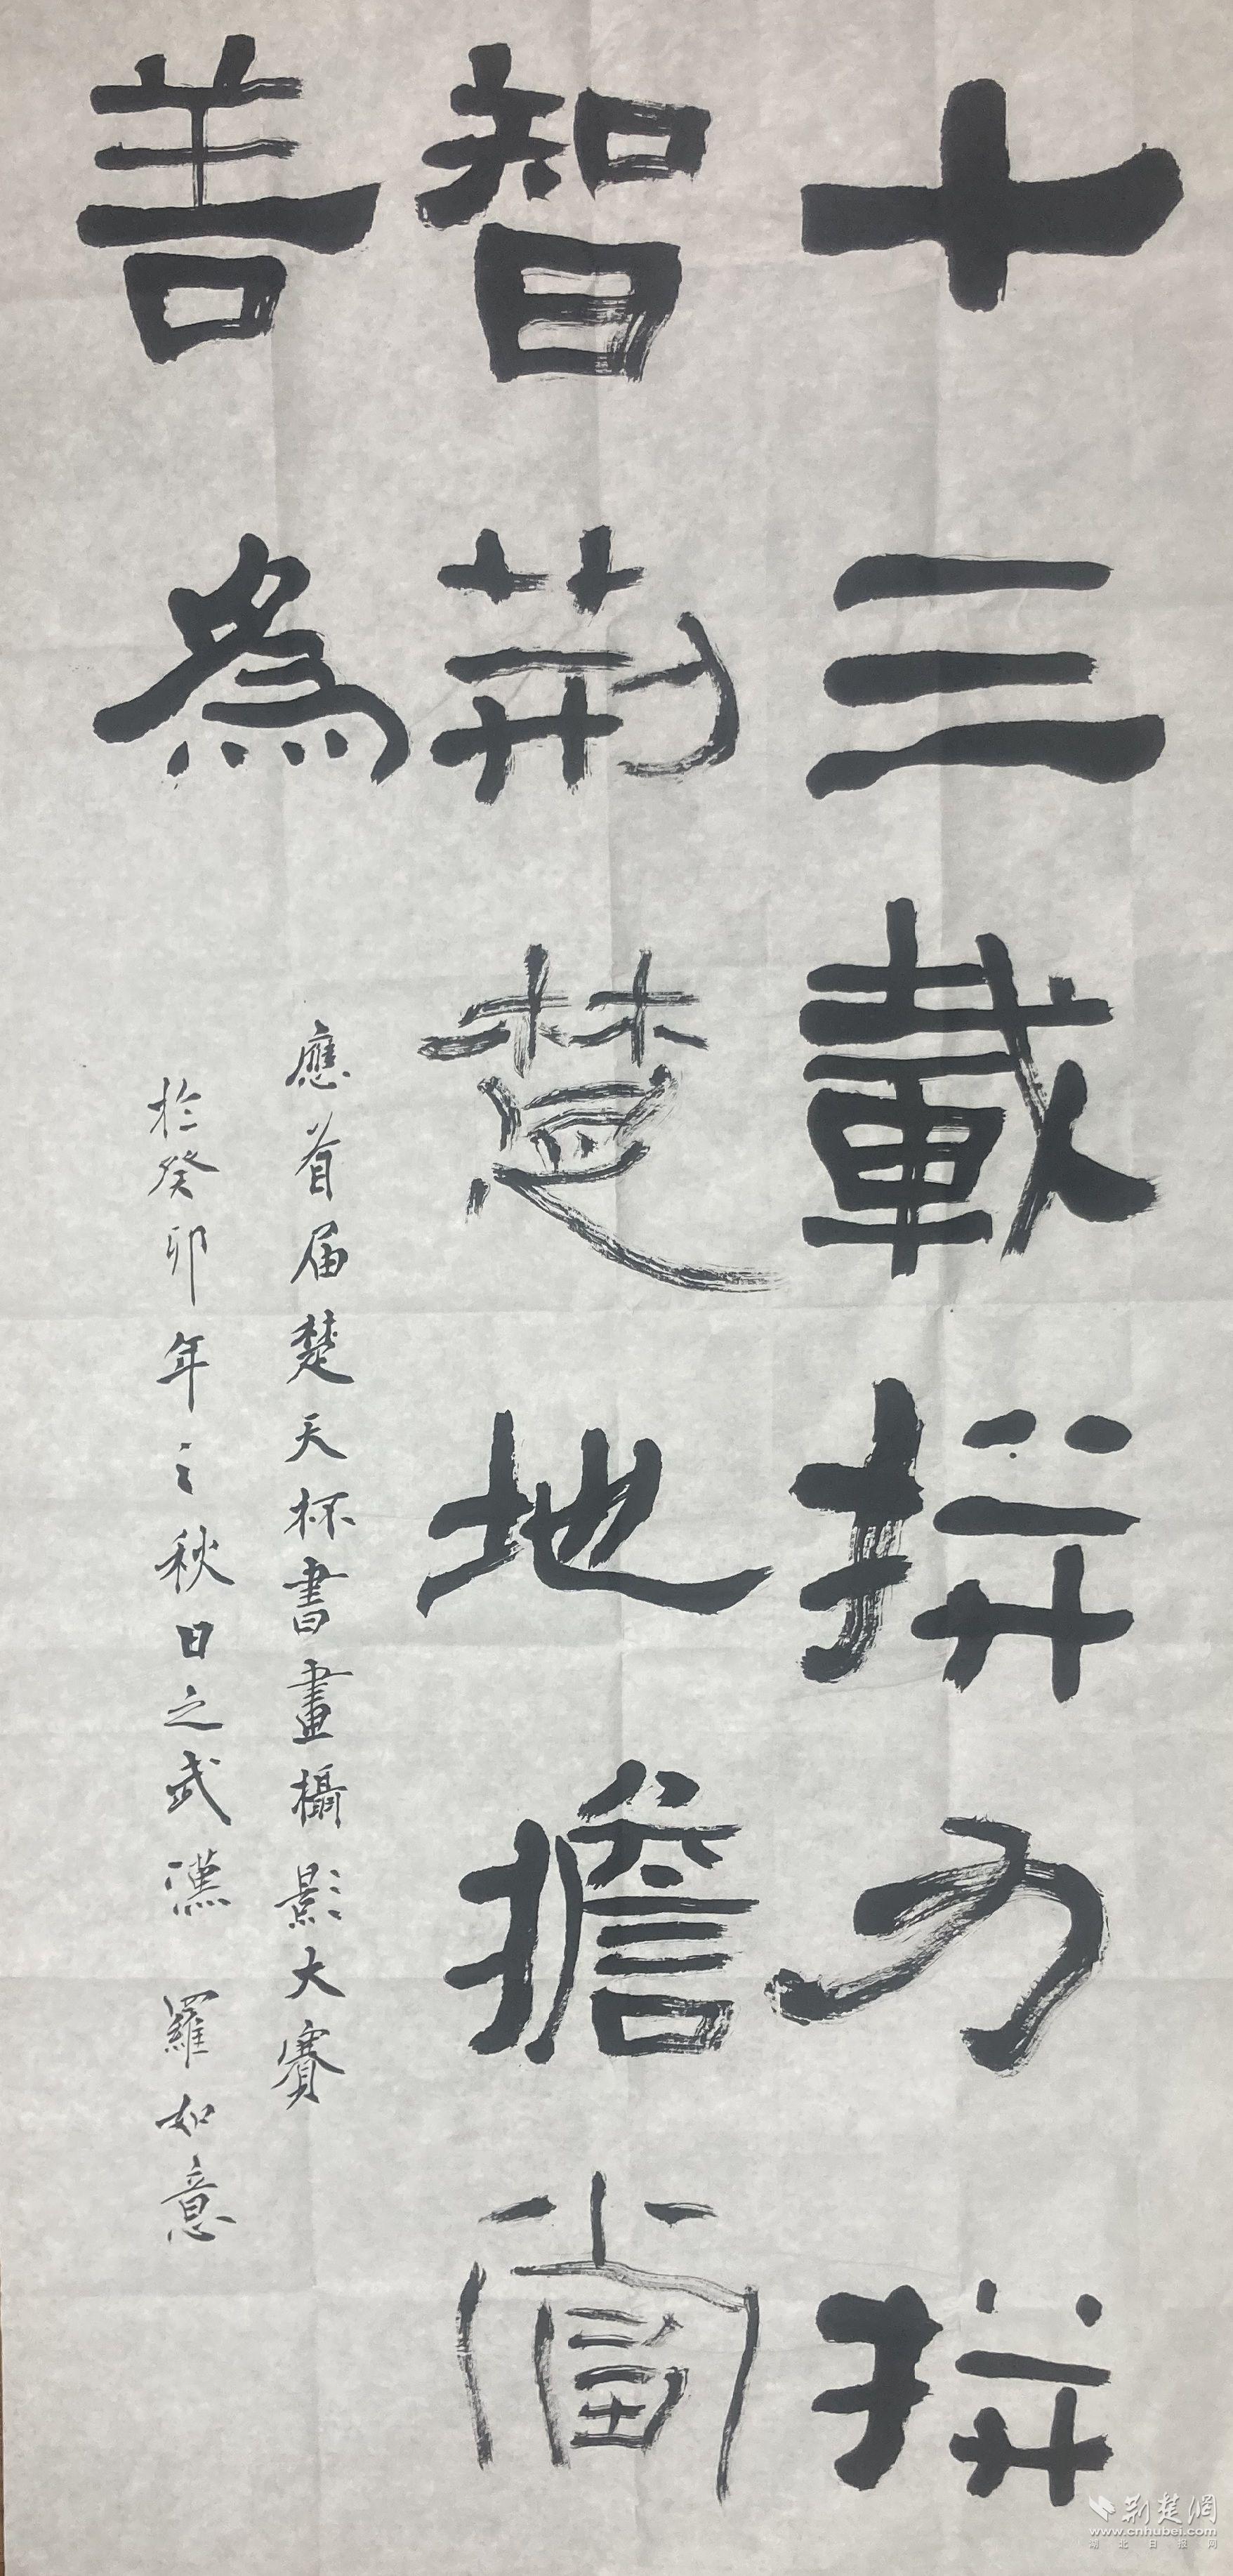 十三載拼力拼
智荊楚地擔當
善為
應首届楚天杯書畫攝影大賽
於癸卯年之秋日之武漢 羅如意
荆楚網
www.cnhubei.com
湖北日报网